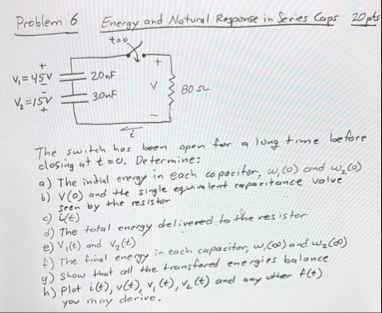 Problem 6 Energy and Natural Response in Series Caps 20pts
t=0
+ +
V₁=45V 20nF
- V 80Ω
V₂=15V 30nF
+ -
i
The switch has been open for a long time before
closing at t=0. Determine:
a) The initial energy in each capacitor, w₁(0) and w₂(0)
b) V(0) and the single equivalent capacitance value
seen by the resistor
c) i(t)
d) The total energy delivered to the resistor
e) V₁(t) and V₂(t)
f) The final energy in each capacitor, w₁(∞) and w₂(∞)
g) Show that all the transfered energies balance
h) Plot i(t), v(t), v₁(t), v₂(t) and any other f(t)
you may derive.